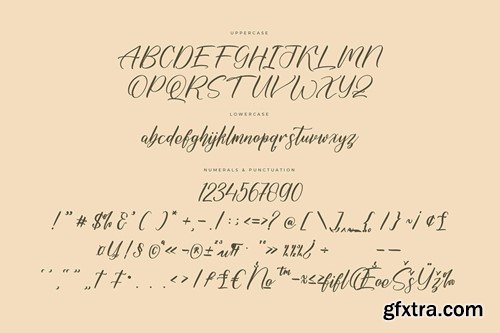 UPPERCASE
ABCDEFGHIJKLMN
OPQRSTUVWXYZ
LOWERCASE
abcdefghijklmnopqrstuvwxyz
NUMERALS & PUNCTUATION
1234567890
! " # $ % & ' ( ) * + , - . / : ; < = > ? @ [ \ ] { | } ~ ¡ ¢ £
¤ ¥ ¦ § © « ® ± ¶ » ÷
† ‡ < > ™ fi fl Œ œ Š š Ÿ ž ‰
gfxtra.com